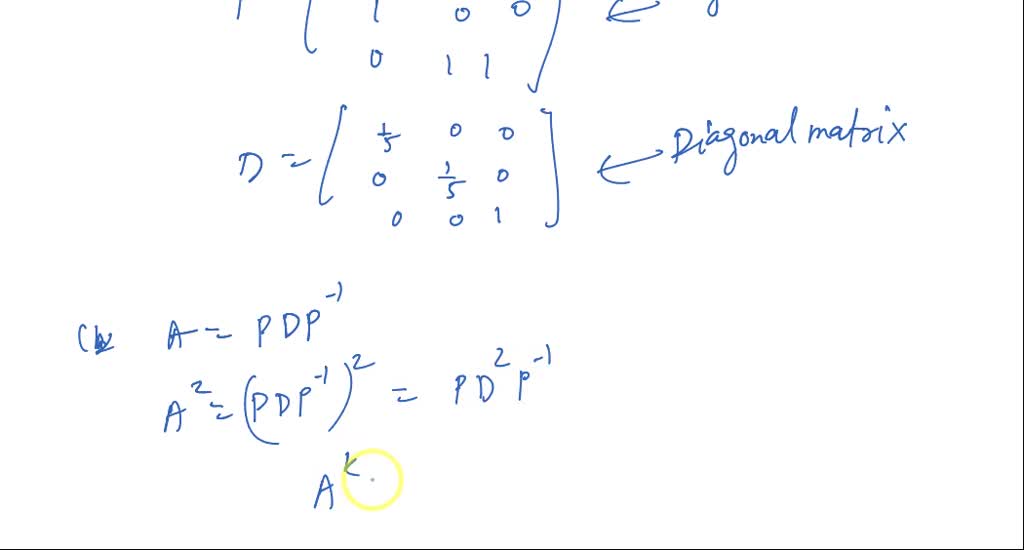 1 0 0
0 1 1
D = [ 1/5 0 0
0 1/5 0 ← Diagonal matrix
0 0 1 ]
(b) A = PDP⁻¹
A² = (PDP⁻¹)² = PD²P⁻¹
Aᵏ